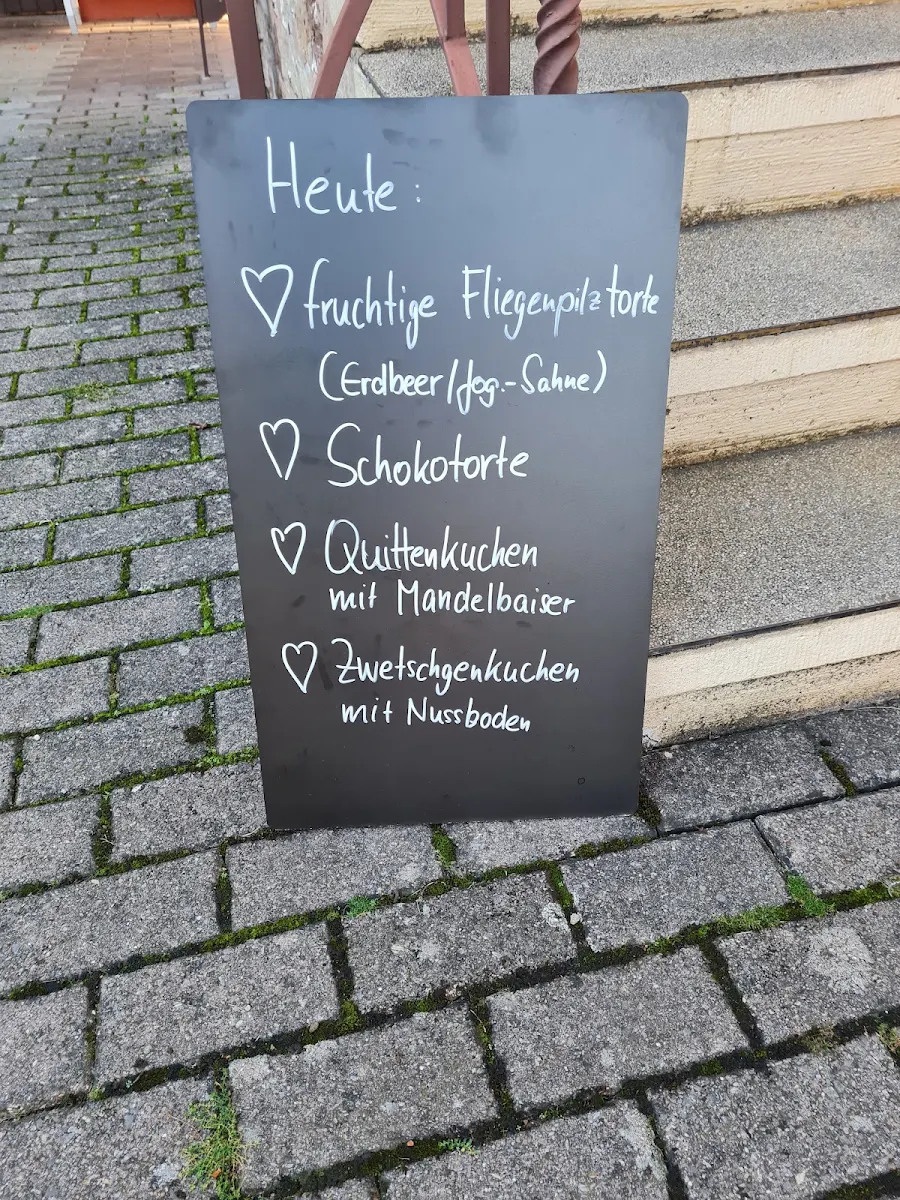 Heute:
♡ fruchtige Fliegenpilztorte
(Erdbeer/Jog.-Sahne)
♡ Schokotorte
♡ Quittenkuchen
mit Mandelbaiser
♡ Zwetschgenkuchen
mit Nussboden